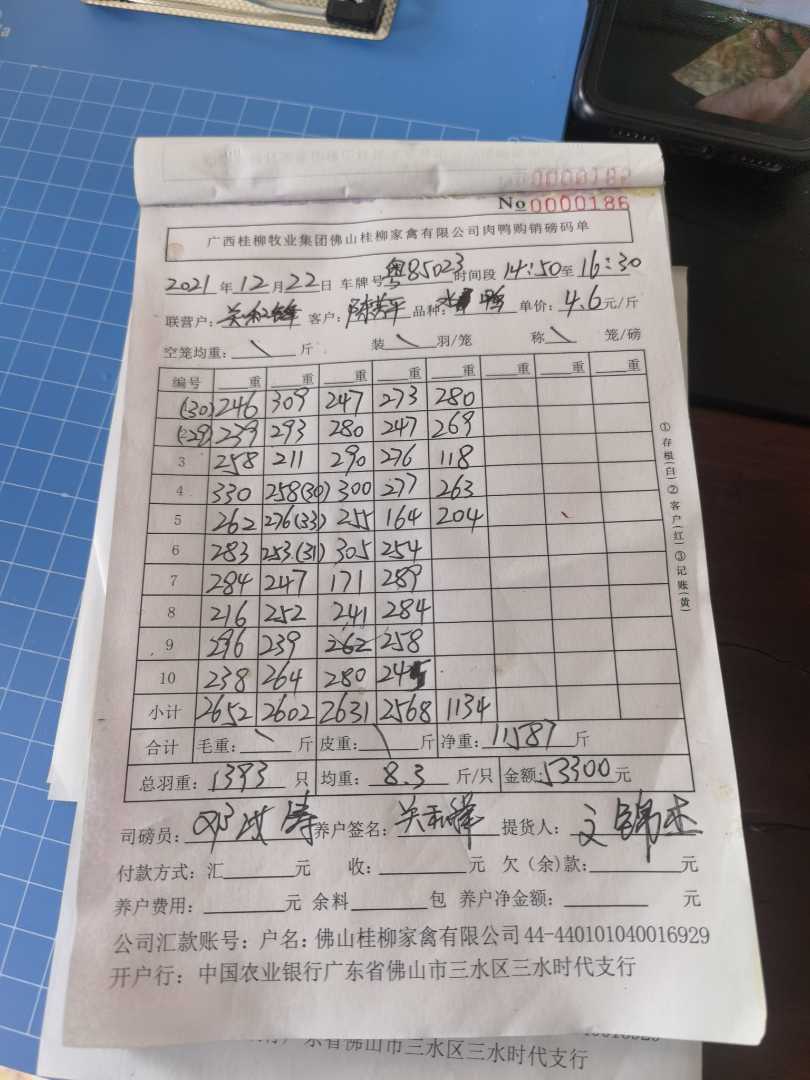 No 0000186
广西桂柳牧业集团佛山桂柳家禽有限公司肉鸭购销磅码单
2021 年 12 月 22 日 车牌号 粤85023 时间段 14:50 至 16:30
联营户: 关和锋 客户: 平 品种: 鸭 单价: 4.6 元/斤
空笼均重: \ 斤 装 \ 羽/笼 称 \ 笼/磅
编号 重 重 重 重 重 重 重 重
(30) 246 309 247 273 280
(29) 239 293 280 247 269
3 258 211 290 276 118
4 330 258(30) 300 277 263
5 262 276(33) 255 164 204
6 283 253.(31) 305 254
7 284 247 171 289
8 216 252 241 284
9 296 239 262 258
10 238 264 280 245
小计 2652 2602 2631 2568 1134
合计 毛重: \ 斤 皮重: \ 斤 净重: 11587 斤
总羽重: 1393 只 均重: 8.3 斤/只 金额: 53300 元
司磅员: 邓 涛 养户签名: 关和锋 提货人: 文锦杰
付款方式: 汇 元 收: 元 欠(余)款: 元
养户费用: 元 余料 包 养户净金额: 元
公司汇款账号: 户名: 佛山桂柳家禽有限公司 44-440101040016929
开户行: 中国农业银行广东省佛山市三水区三水时代支行
①存根(白)②客户(红)③记账(黄)
广东省佛山市三水区三水时代支行